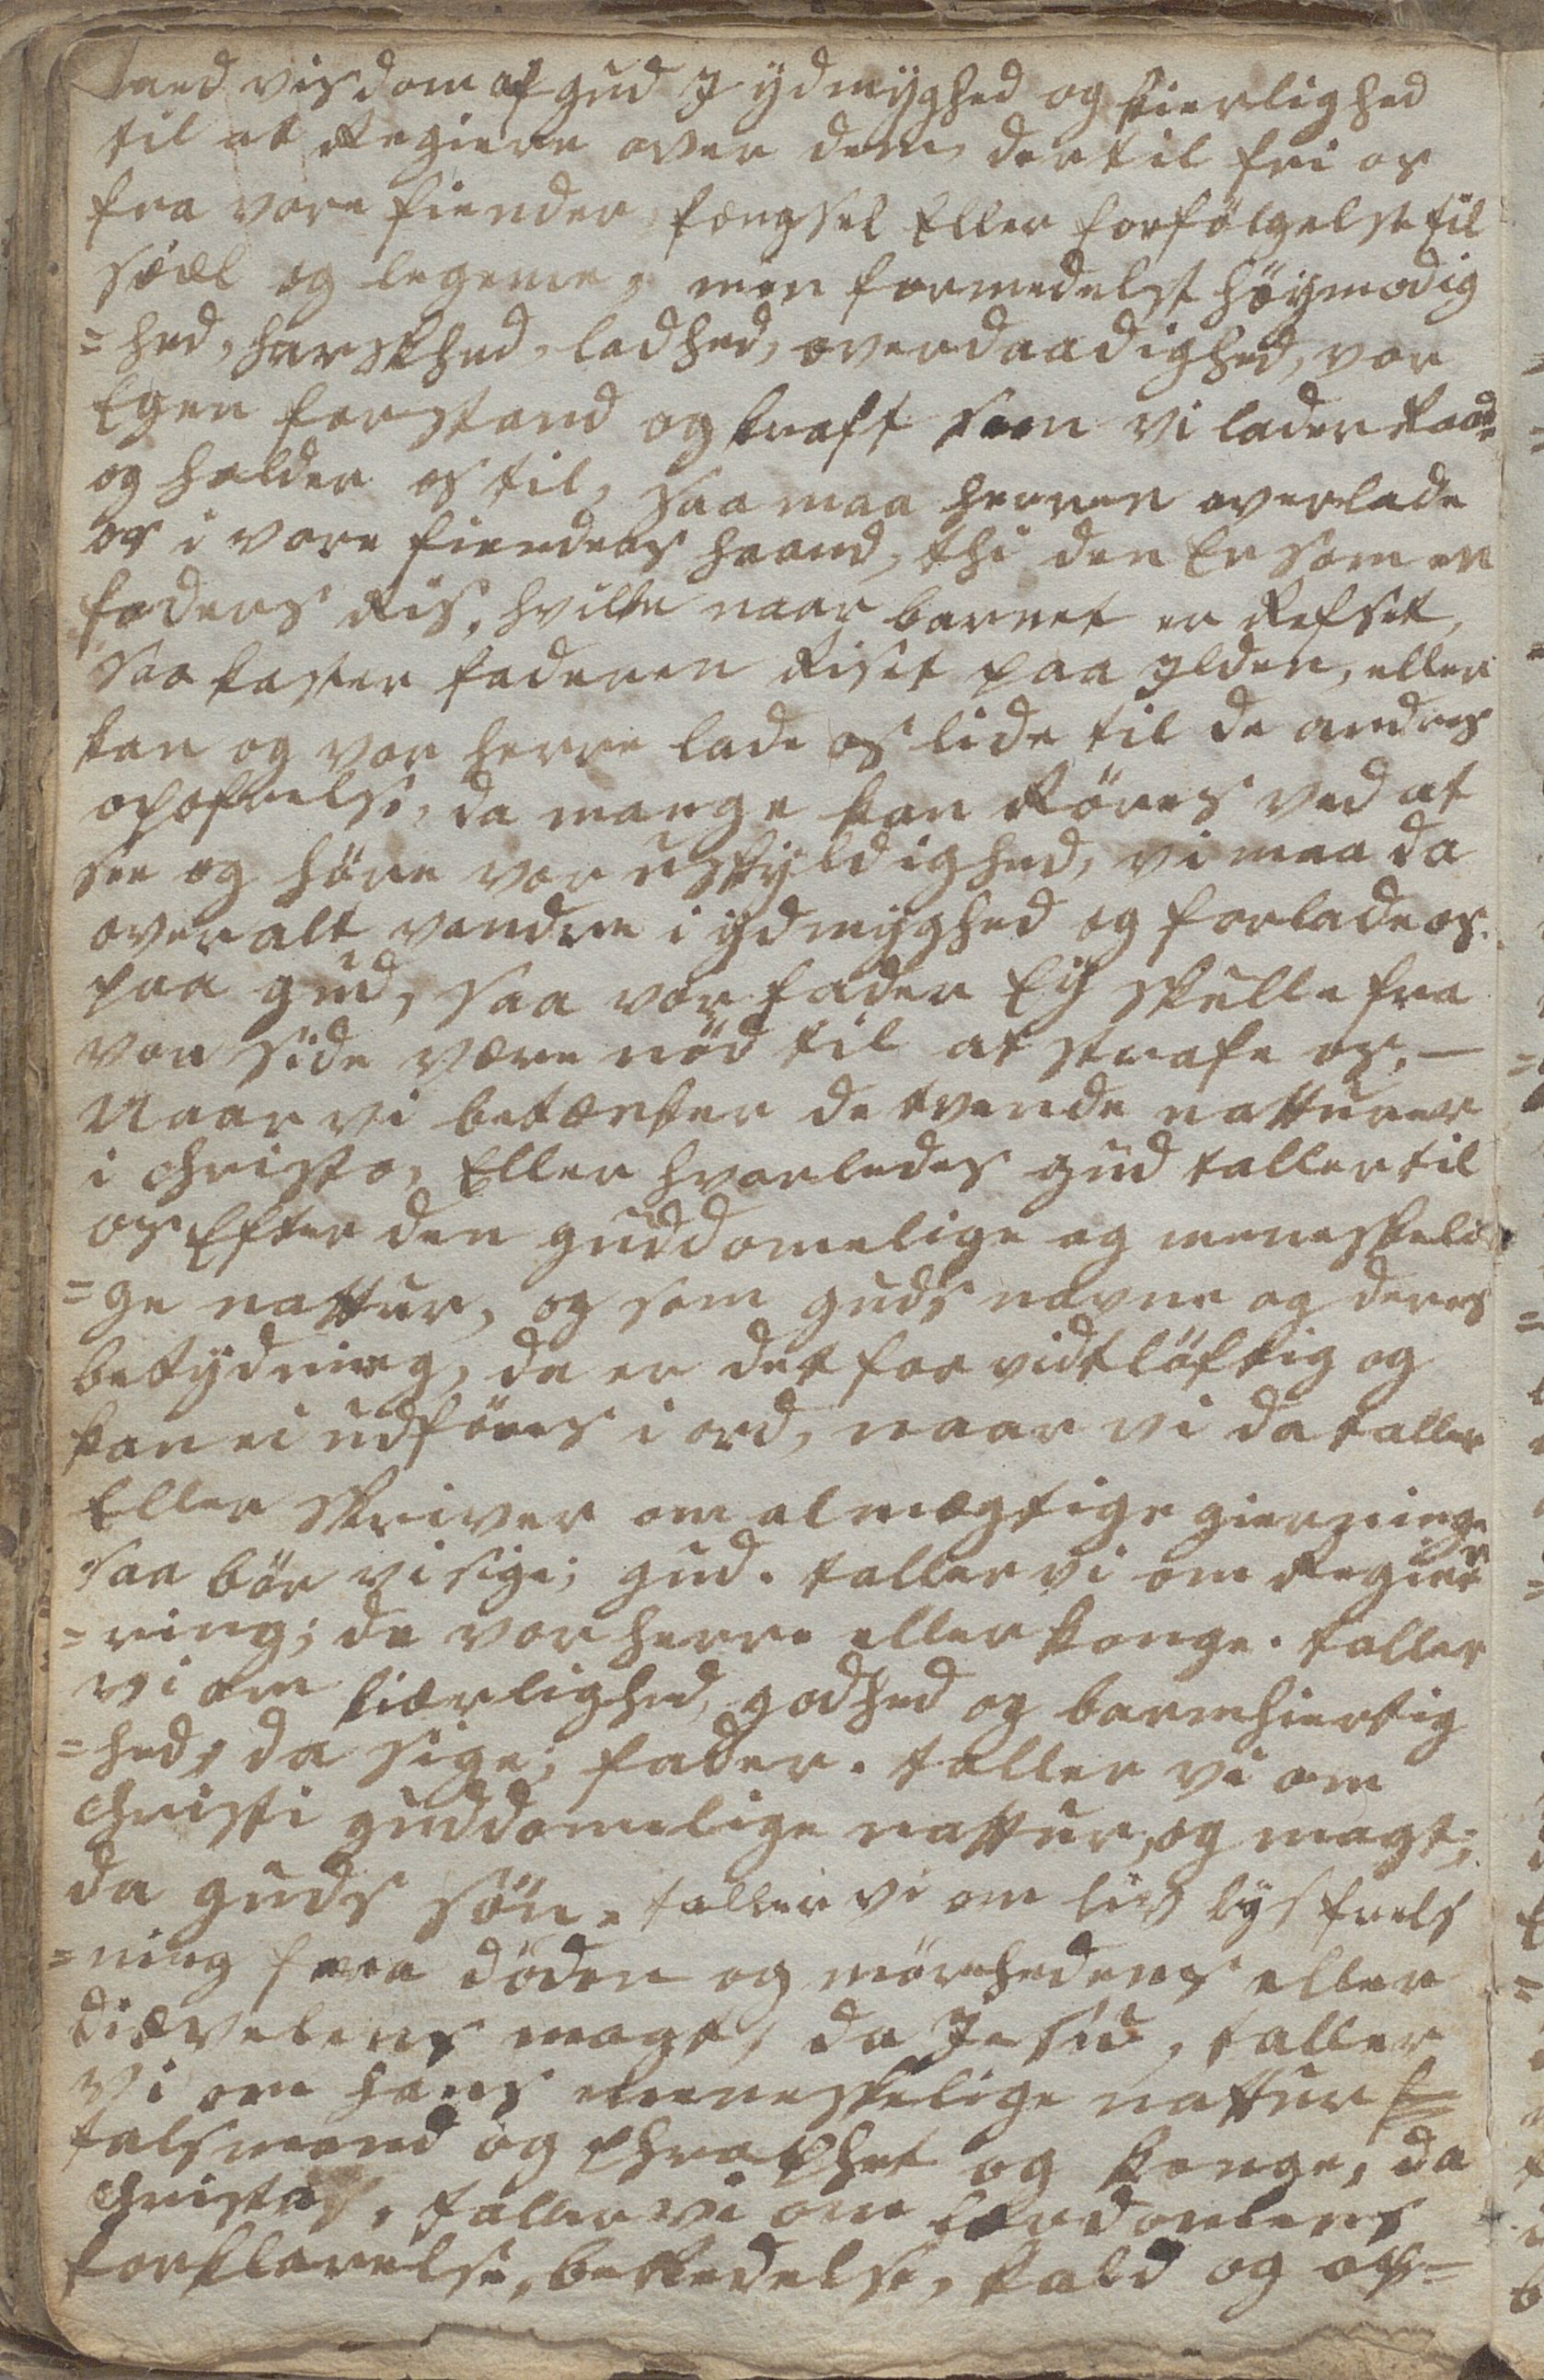 sand visdom af gud I ydmyghed og kierlighed
til at Regiere over dem, der til fri os
fra vore fiender, fængsel Eller forfölgelse til
siæl og legeme, men formedelst höymodig
=hed, harskhed, ladhed, overdaadighed, vor
Egen forstand og kraft som vi lader Raade
og holder os til, saa maa herren overlade
os i vore fienders haand, thi den Er som en
faders Ris, hvilke naar barnet er Refset,
saa kaster faderen Riset paa Ilden, eller
kan og vor herre lade os lide til de andres
opofrelse, da mange kan Röres ved at
see og höre vor uskyldighed, vi maa da
over alt vandre i ydmyghed og forlade os
paa gud, saa vor fader Ey skulle fra
vor side være nöd til at strafe os, —
Naar vi betænker de tvende natturer
i Christo, Eller hvorledes gud taller til
os Efter den guddomelige og meneskeli
=ge nattur, og som guds navne og deres
betydning, da er det for vidtlöftig og
kan ei udföres i ord, naar vi da taller
Eller skriver om almægtige gierninger
saa bör vi sige; gud. taller vi om Regie
=ring; da vor herre eller konge. taller
vi om kiærlighed, godhed og barmhiertig
=hed, da sige; fader. taller vi om
Christi guddomelige nattur, og magt;
da guds sön, taller vi om liv lys frels
=ning fra döden og mörkhedens eller
diævelens magt, da Jesu, taller
vi om hans meneskelige nattur
talsmand og Prophet og konge, da
Christus, taller vi om lærdomens
forklarelse, beskedelse, kald og op=